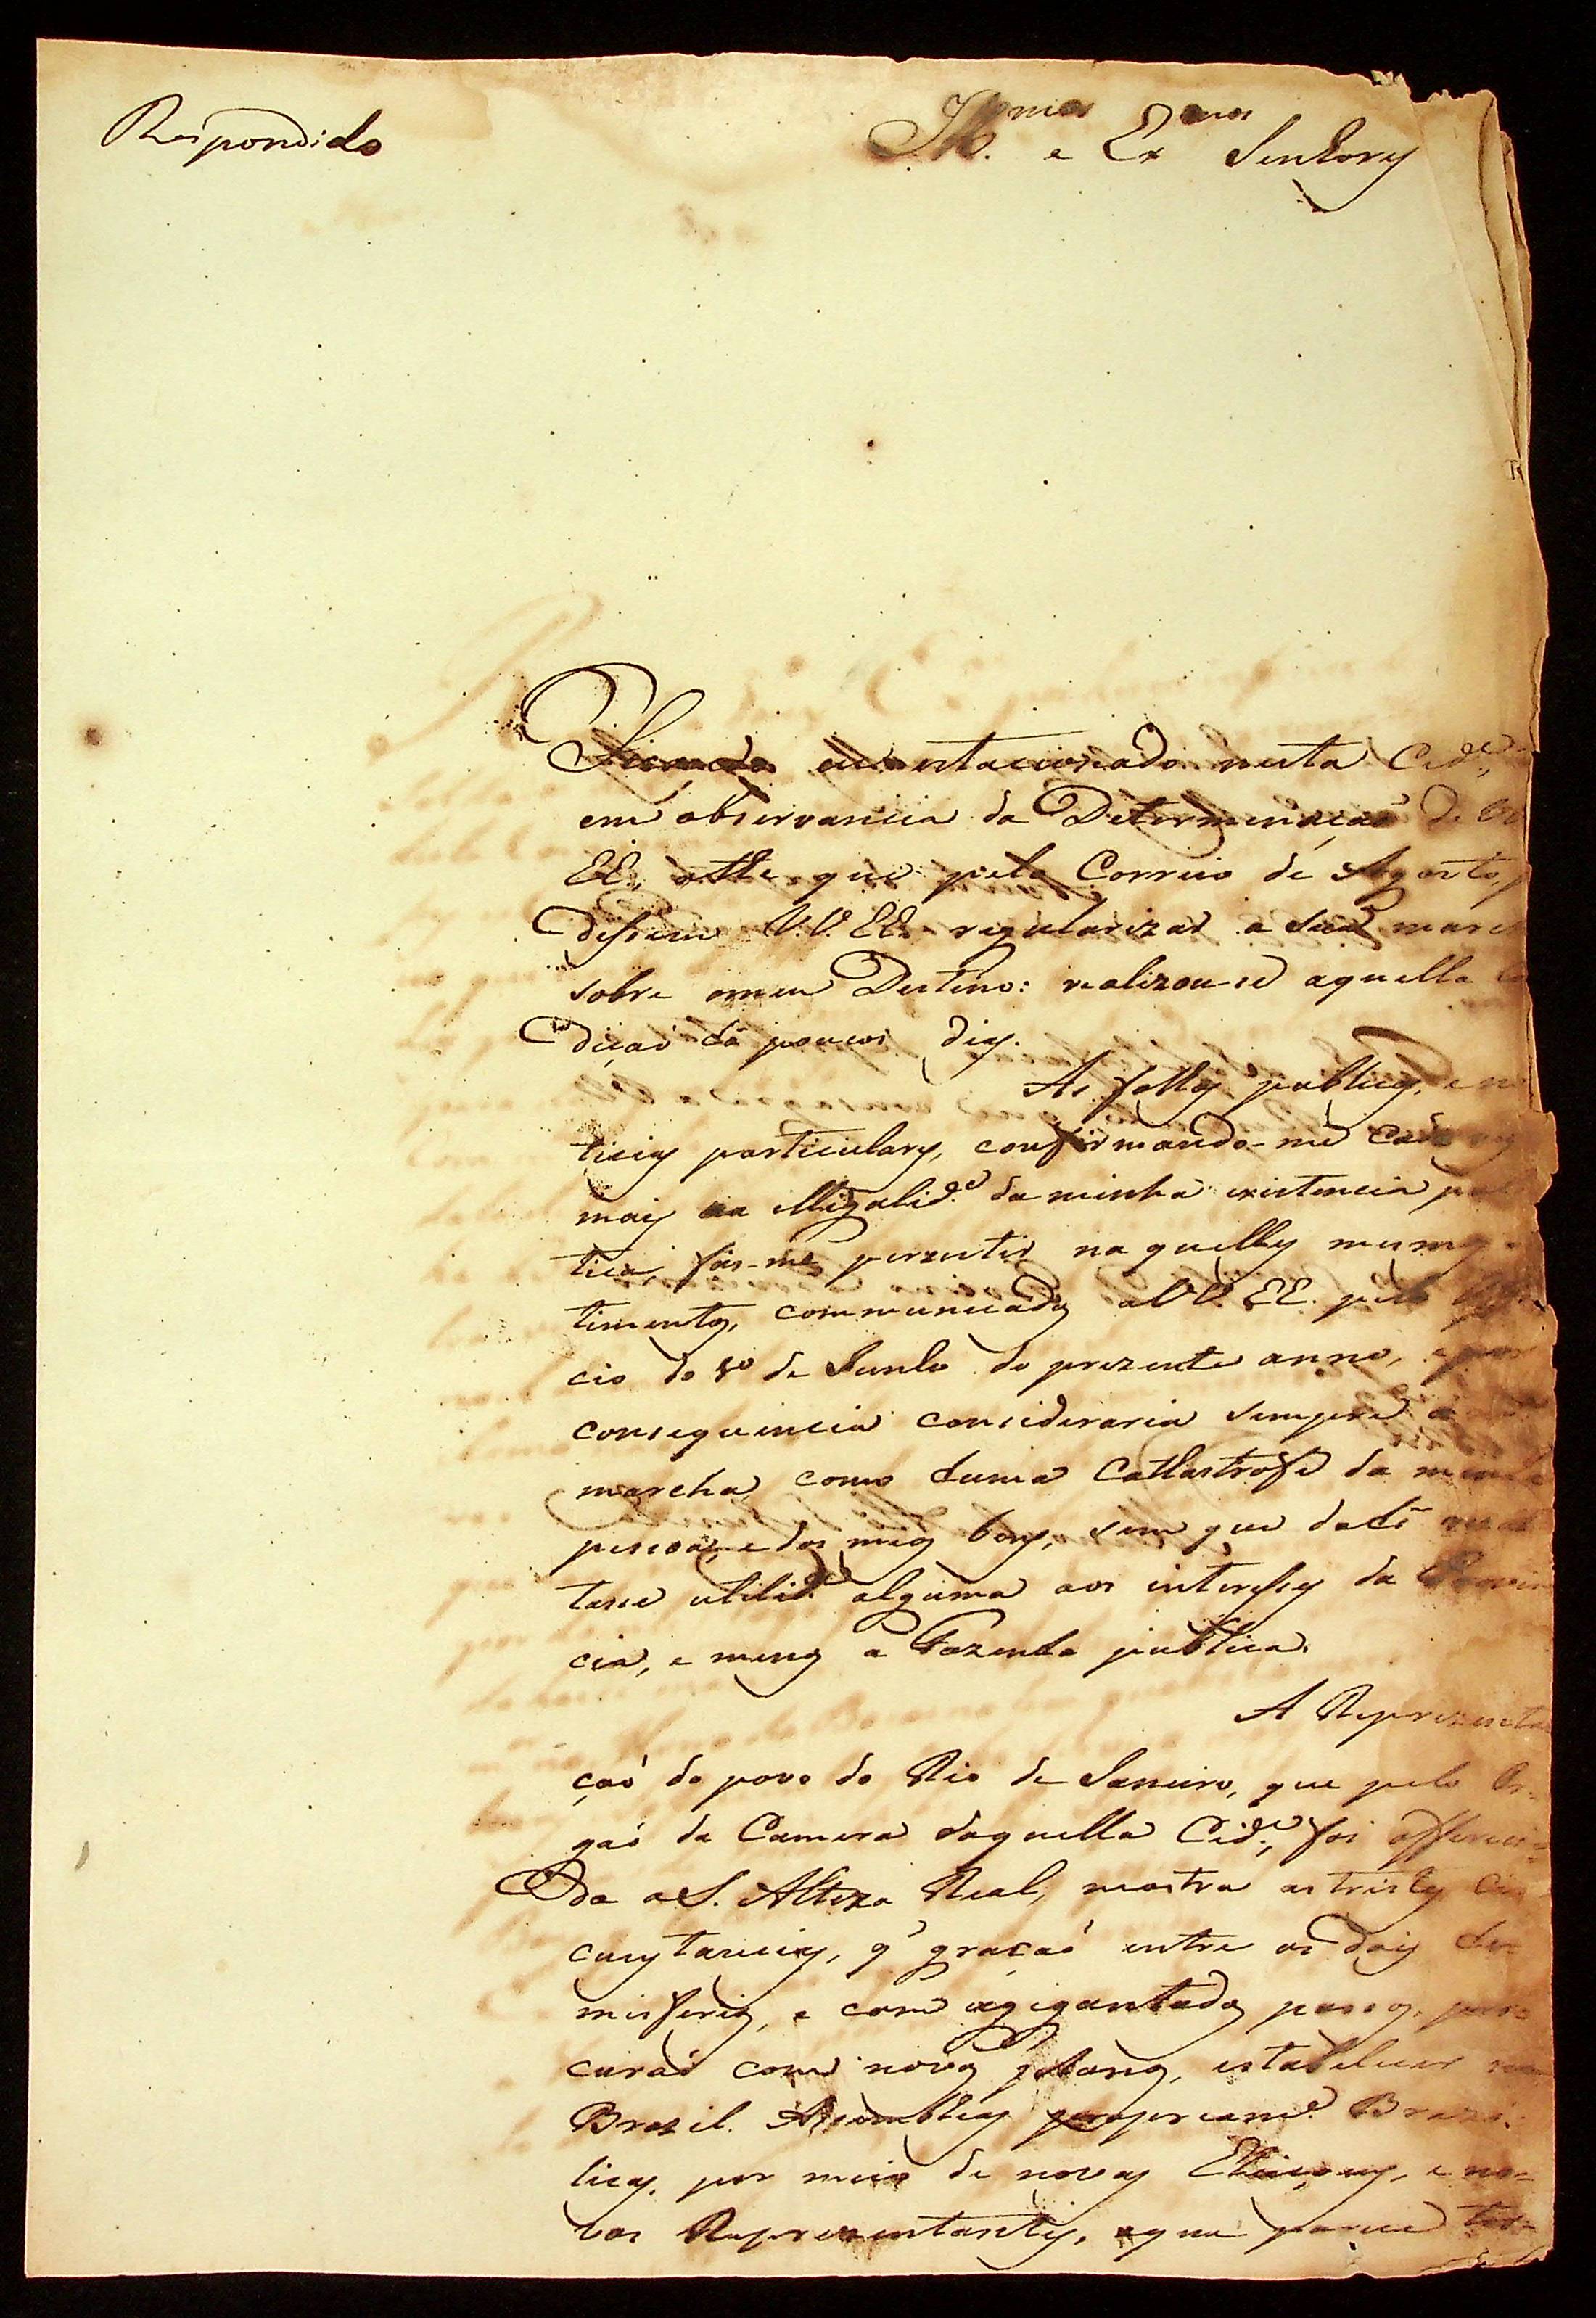 Respondido
Ill.mos e Ex.mos Senhores
Ficando eu estacionado nesta Cid.e
em observancia da Determinação de VV.
EE. athe que pelo Correio de Agosto, p
desem V.V. EE. regularizar a sua march
sobre omeu Destino: realizou-se aquella
dição há poucos dias.
As folhas publicas, e no
ticias particulares, confirmando-me cada vez
mais na illigalid.e da minha existencia pol
tica, fás-me perzestir na quelles mesmos
timentos, communicados a VV. EE. pelo Offi
cio do 1º de Junho do prezente anno, e por
consequencia consideraria sempre a
marcha como huma Cathastrofe da minha
pessoa, e dos meus bens, sem que dahi resul
tasse utilid.e alguma aos interesses da Provin
cia, e menos a Fazenda publica.
A Reprezenta
ção do povo do Rio de Janeiro, que pelo Or-
gão da Camera daquella Cid.e, foi offereci-
da a S. Alteza Real, mostra as tristes cir
cunstancias, q' gração entre os dois He-
misferios, e com agigantados passos, pro
curão com novos planos, estabelecer no
Brazil. Assembleas propriam.e Brazi-
licas, por meio de novas Eleiçoens, e no-
vos Reprezentantes, oque parece ter-